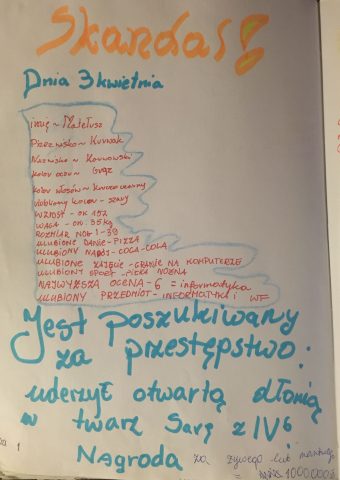 Skandal!
Dnia 3 kwietnia
imię ~ Mateusz
Pierwsko ~ Kurwak
Nazwisko ~ Kownowski
kolor oczu ~ brąz
kolor włosów ~
ulubiony kolor - szary
WZROST - OK 152
WAGA - OK. 35 kg
ROZMIAR NOGI - 38
ULUBIONE DANIE - PIZZA
ULUBIONY NAPÓJ - COCA-COLA
ULUBIONE ZAJĘCIE - GRANIE NA KOMPUTERZE
ULUBIONY SPORT - PIŁKA NOŻNA
NAJWYŻSZA OCENA - 6 = informatyka
ULUBIONY PRZEDMIOT - INFORMATYKA i WF
Jest poszukiwany
za przestępstwo:
uderzył otwartą dłonią
w twarz Sarę z IV b
Nagroda za żywego lub martwego
= 1000.000 zł
1